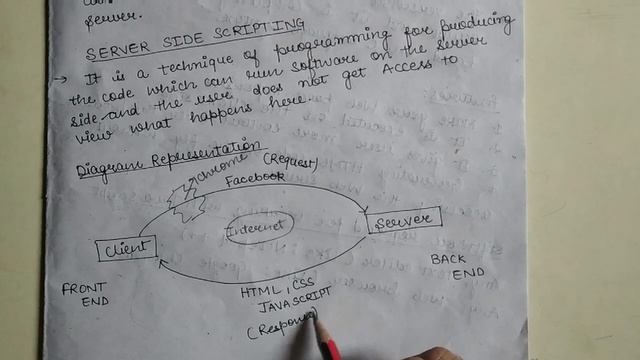 server.
SERVER SIDE SCRIPTING
→ It is a technique of programming for producing
the code which can run software on the server
side and the user does not get Access to
view what happens here.
Diagram Representation
chrome (Request)
Facebook
Internet
Client
Server
FRONT
END
BACK
END
HTML, CSS
JAVASCRIPT
(Response)